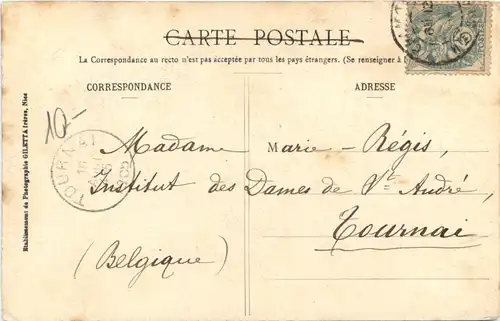 CARTE POSTALE
La Correspondance au recto n'est pas acceptée par tous les pays étrangers. (Se renseigner à
CORRESPONDANCE
ADRESSE
Etablissement de Photographie GILETTA frères, Nice
10-
TOURNAI
Madame Marie-Régis,
Institut des Dames de St André,
Tournai
(Belgique)